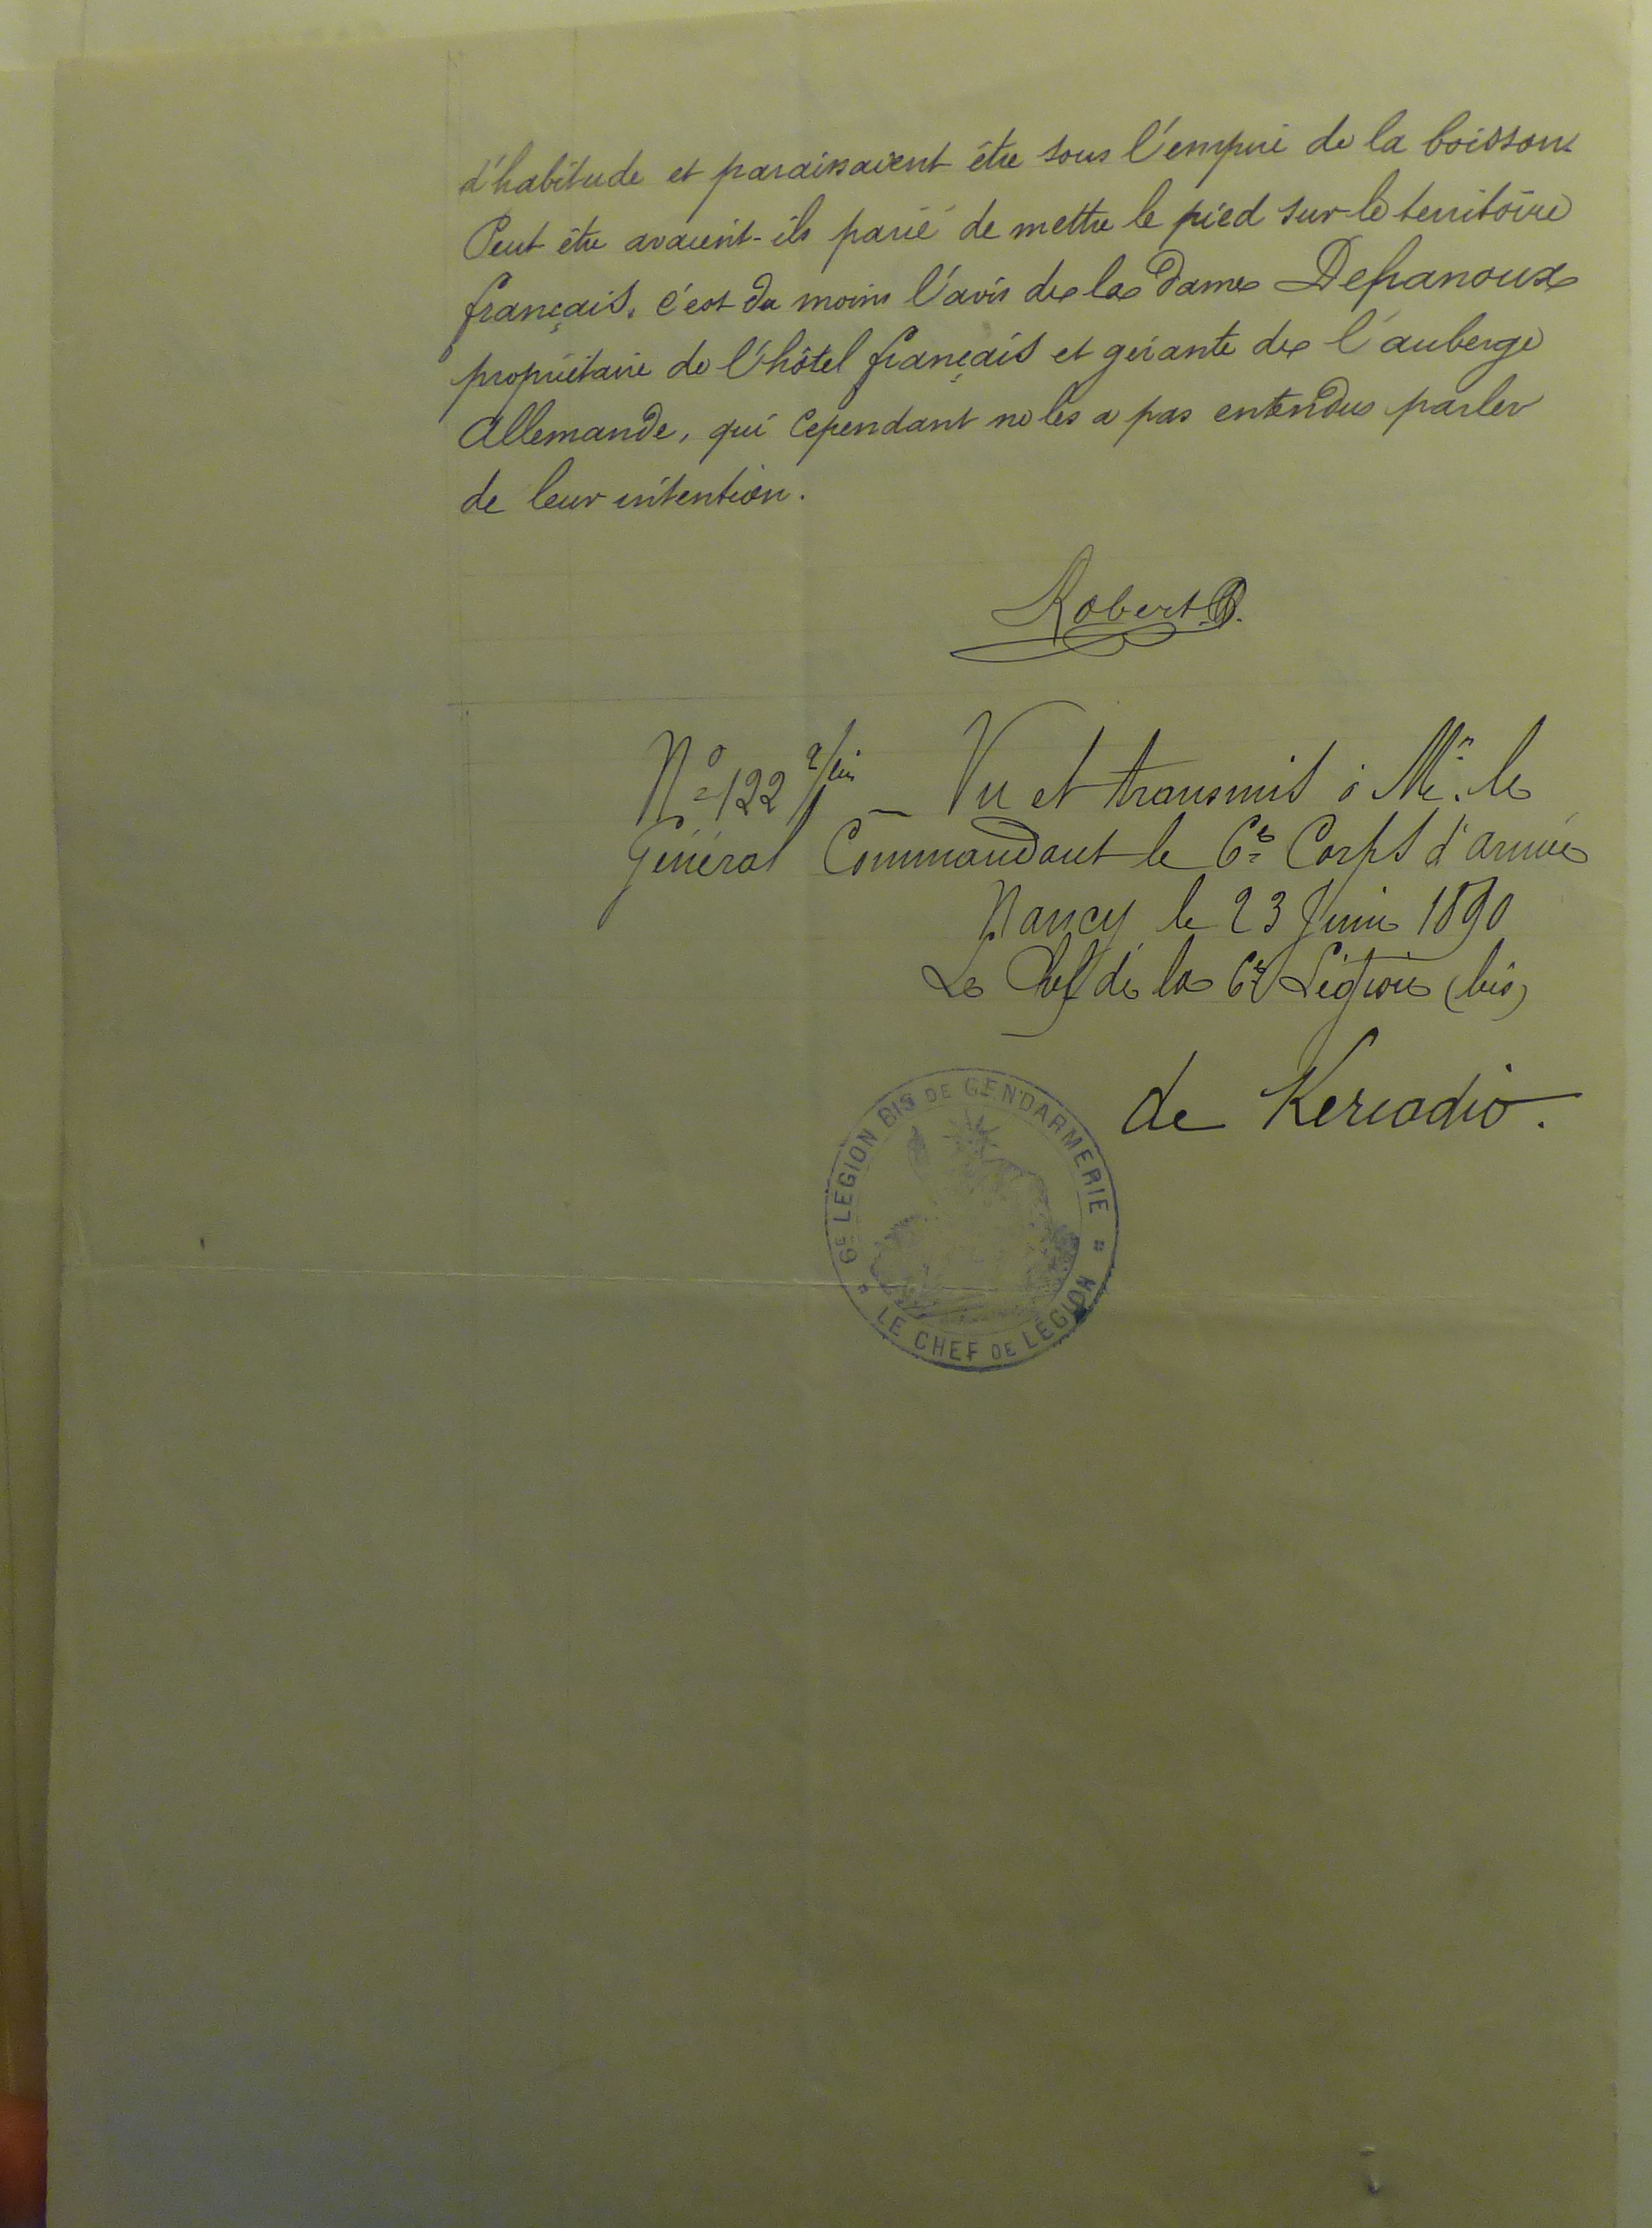 d'habitude et paraissaient être sous l'empire de la boisson.
Peut être avaient-ils parié de mettre le pied sur le territoire
français. c'est du moins l'avis de la dame Depanoux
propriétaire de l'hôtel français et gérante de l'auberge
Allemande, qui cependant ne les a pas entendus parler
de leur intention.
Robert
N° 122 - Vu et transmis à Mr. le
Général Commandant le 6e Corps d'armée
Nancy le 23 Juin 1890
Le Chef de la 6e Légion (bis)
de Kercadio.
6E LÉGION BIS DE GENDARMERIE
LE CHEF DE LÉGION